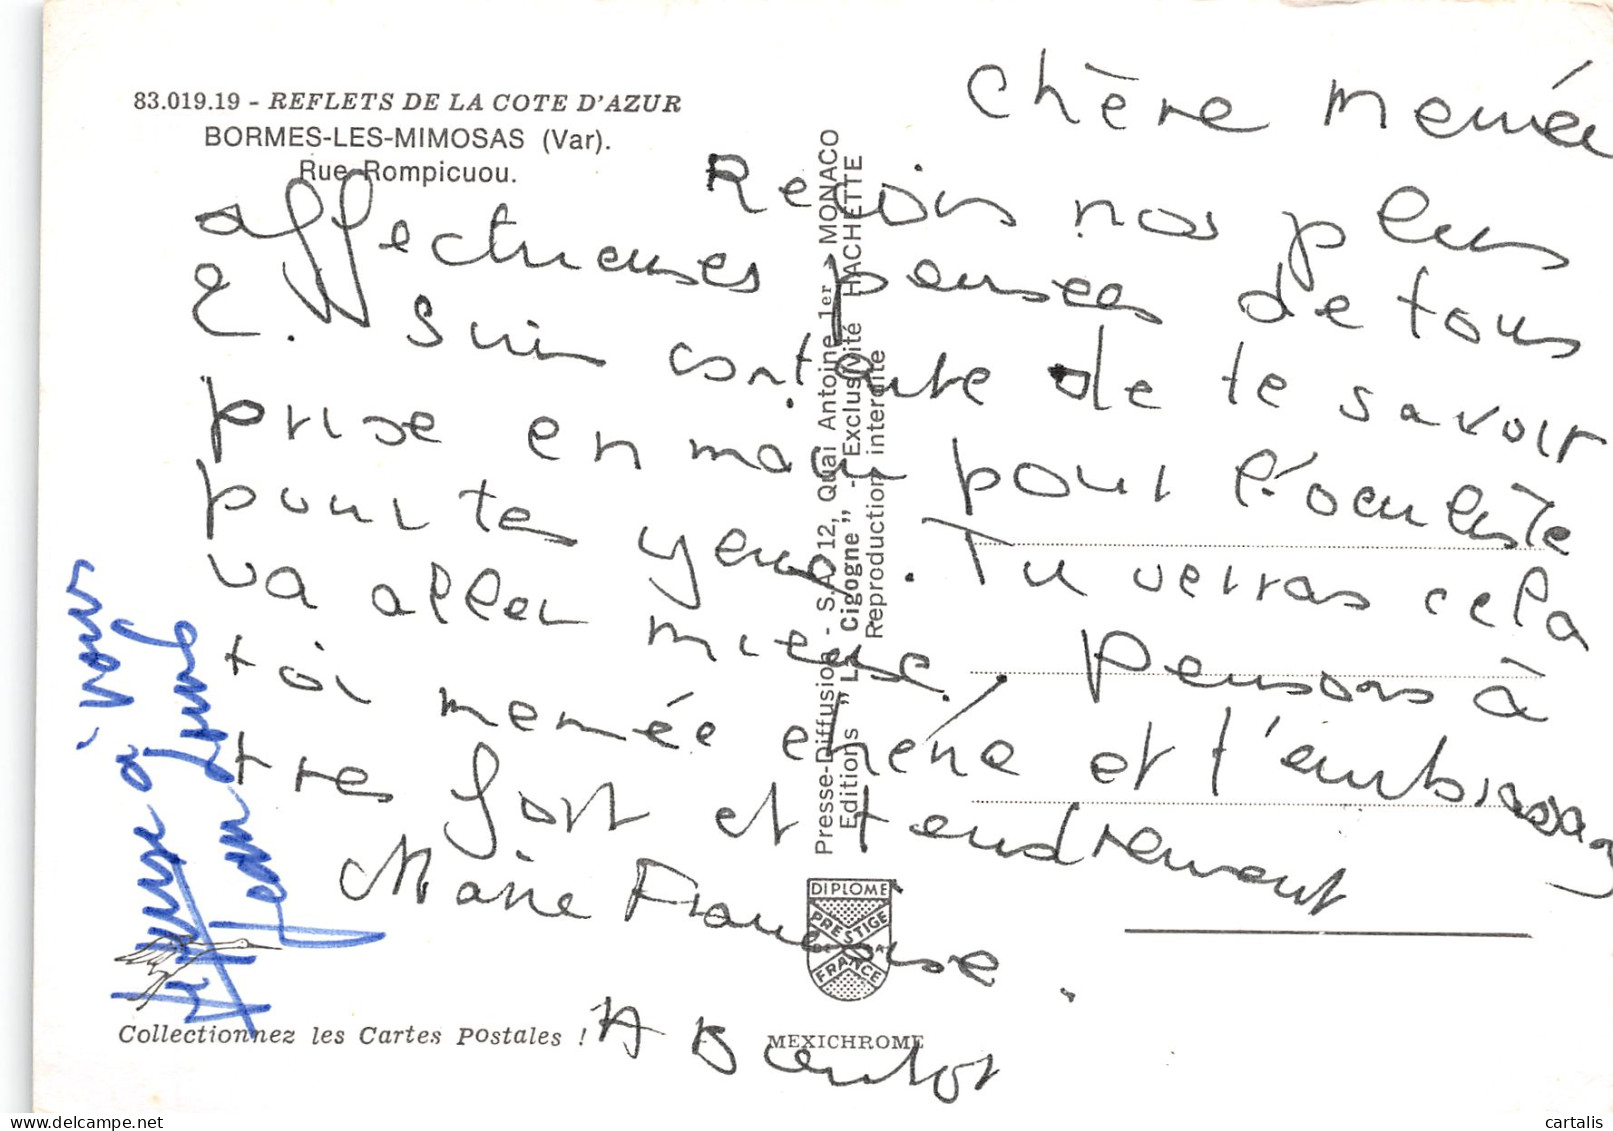 83.019.19 - REFLETS DE LA COTE D'AZUR
BORMES-LES-MIMOSAS (Var).
Rue Rompicuou.
Chère Memée
Reçois nos plus
affectueuses pensées de tous
2. Suis contente de te savoir
prise en main pour l'oculiste
pour tes yeux. Tu verras cela
va aller mieux. Pensons à
toi memée chérie et t'embrassons
très fort et tendrement
Marie Françoise.
A Bientot
à vous
Jean Louis
Presse-Diffusion - S.A. 12, Quai Antoine 1er - MONACO
Editions "La Cigogne" - Exclusivité HACHETTE
Reproduction interdite
DIPLOME
PRESTIGE
DE LA
FRANCE
Collectionnez les Cartes Postales !
MEXICHROME
cartalis
delcampe.net